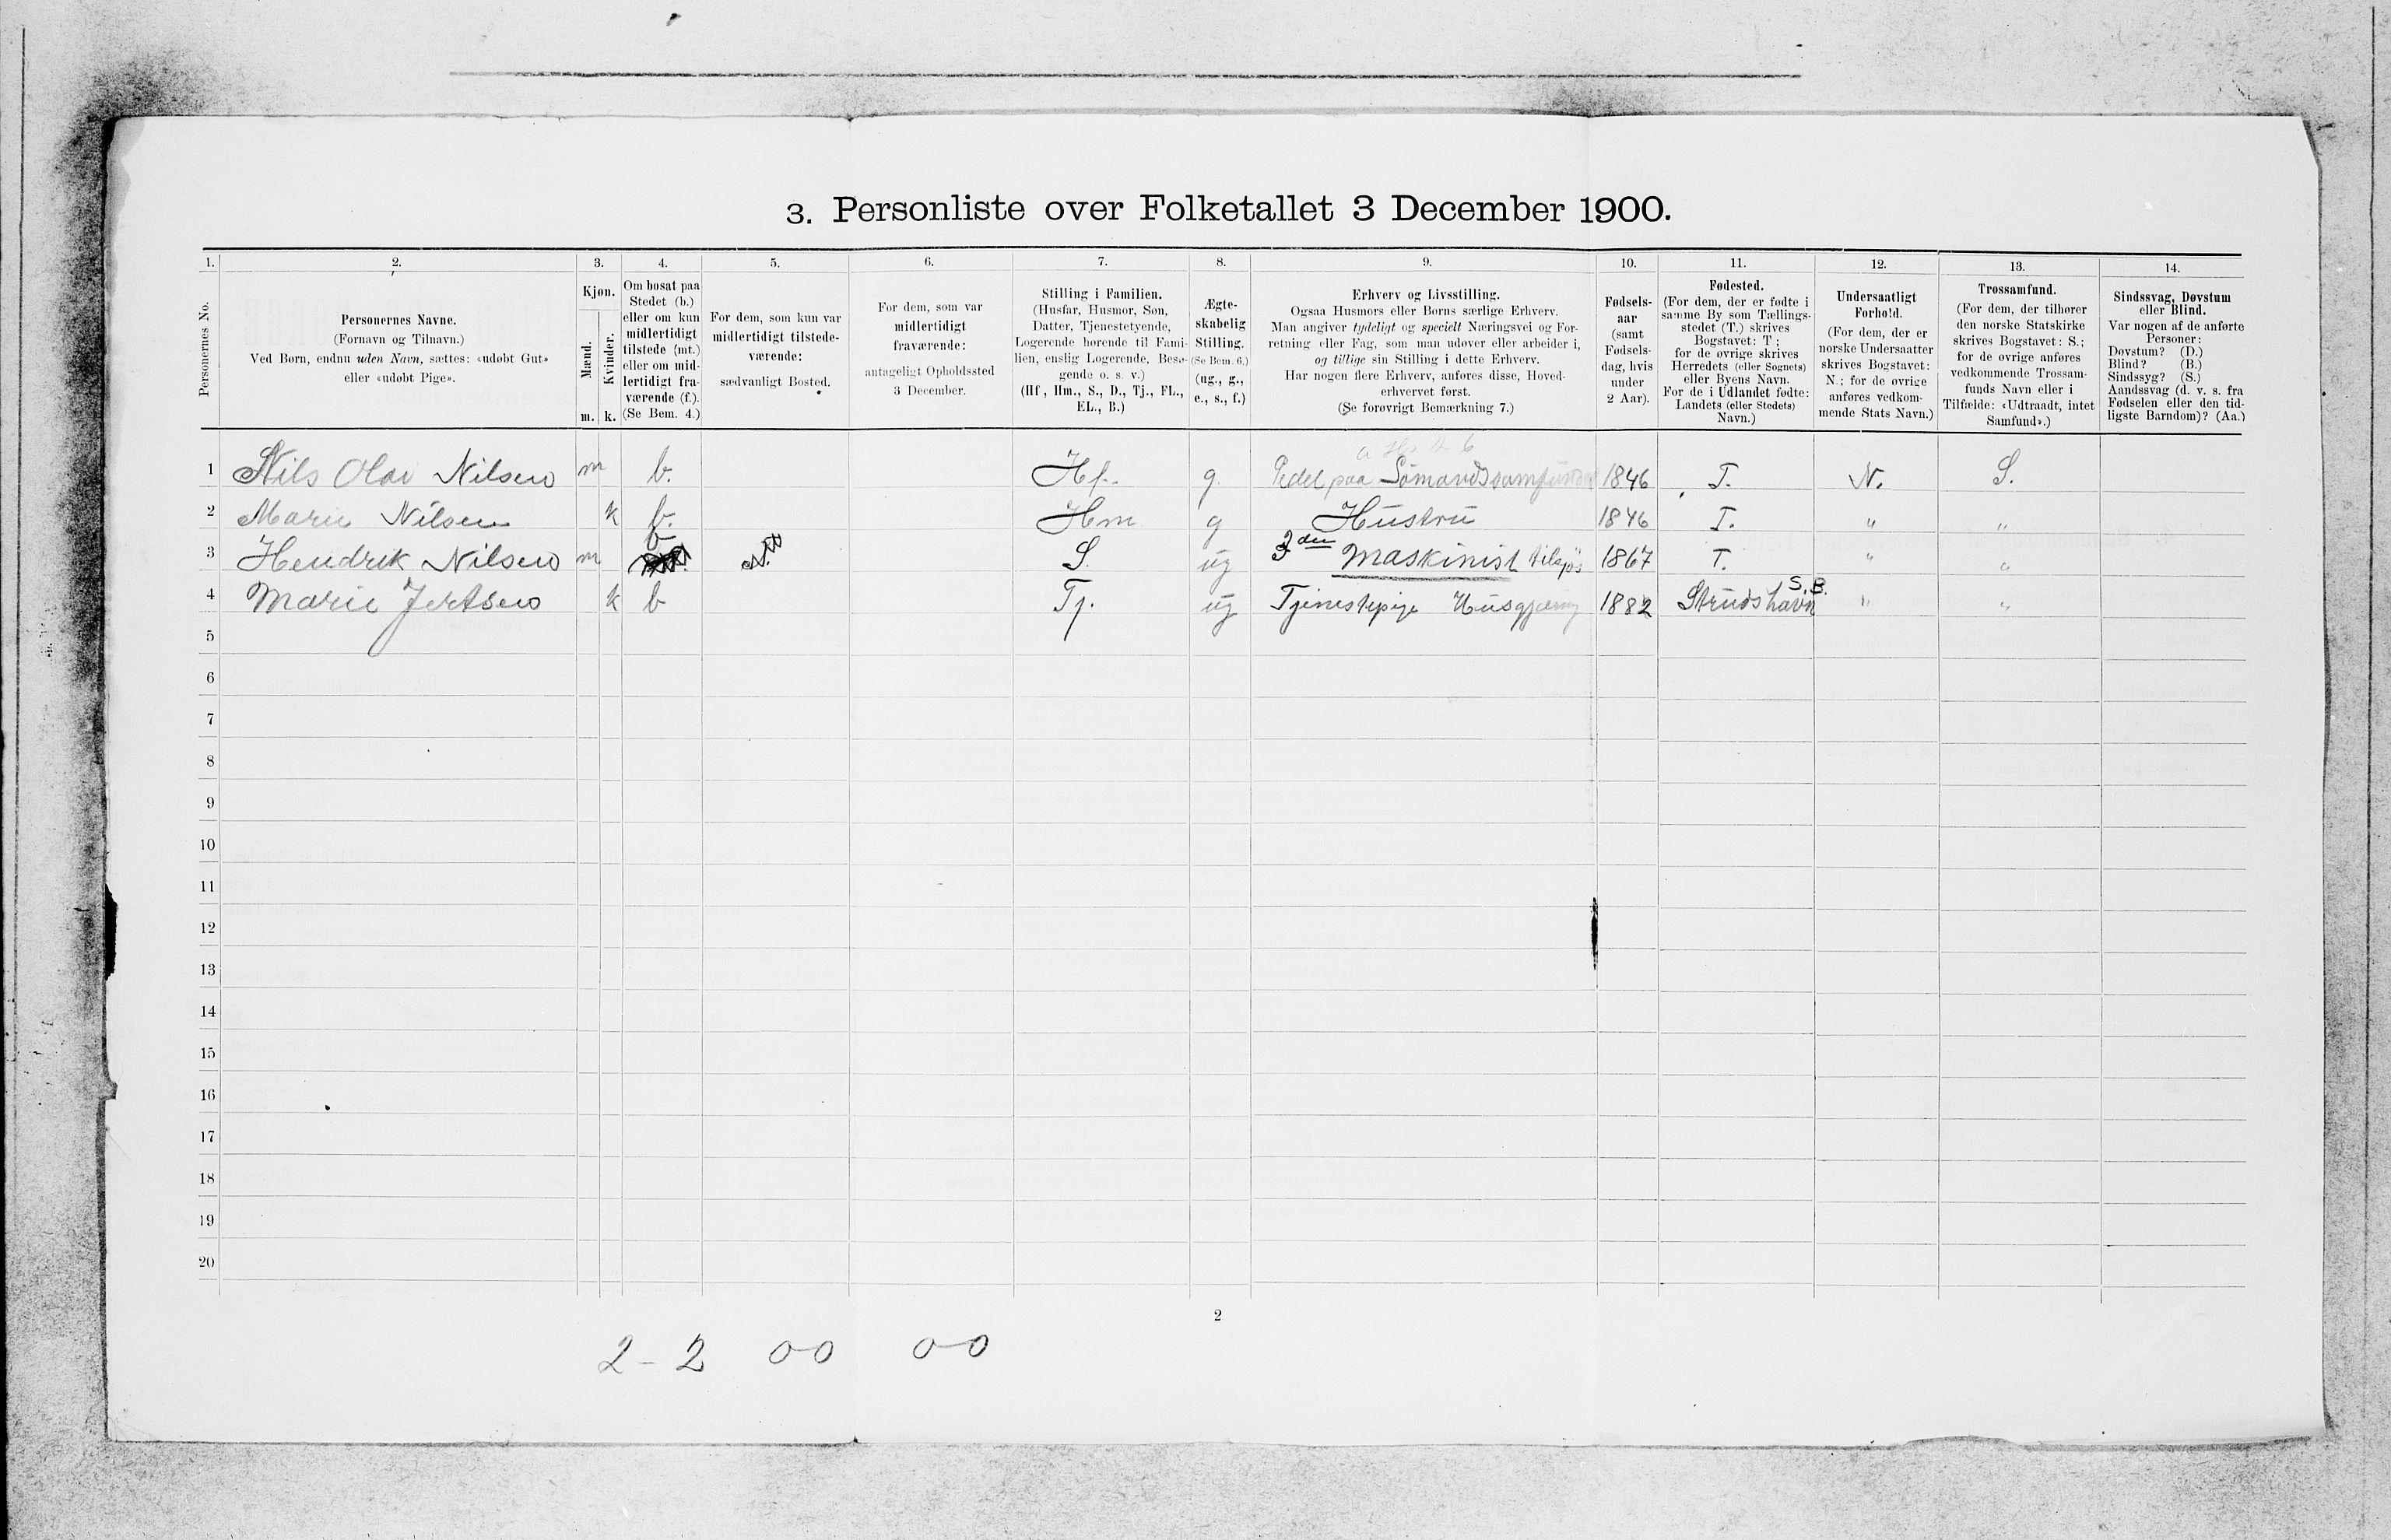 3. Personliste over Folketallet 3 December 1900.
1. 2. 3. 4. 5. 6. 7. 8. 9. 10. 11. 12. 13. 14.
Personernes No.
Personernes Navne.
(Fornavn og Tilnavn.)
Ved Børn, endnu uden Navn, sættes: «udøbt Gut»
eller «udøbt Pige».
Kjøn.
Mænd.
Kvinder.
m. k.
Om bosat paa
Stedet (b.)
eller om kun
midlertidigt
tilstede (mt.)
eller om mid-
lertidigt fra-
værende (f.).
(Se Bem. 4.)
For dem, som kun var
midlertidigt tilstede-
værende:
sædvanligt Bosted.
For dem, som var
midlertidigt
fraværende:
antageligt Opholdssted
3 December.
Stilling i Familien.
(Husfar, Husmor, Søn,
Datter, Tjenestetyende,
Logerende hørende til Fami-
lien, enslig Logerende, Besø-
gende o. s. v.)
(Hf, Hm., S., D., Tj., FL.,
EL., B.)
Ægte-
skabelig
Stilling.
(Se Bem. 6.)
(ug., g.,
e., s., f.)
Erhverv og Livsstilling.
Ogsaa Husmors eller Børns særlige Erhverv.
Man angiver tydeligt og specielt Næringsvei og For-
retning eller Fag, som man udøver eller arbeider i,
og tillige sin Stilling i dette Erhverv.
Har nogen flere Erhverv, anføres disse, Hoved-
erhvervet først.
(Se forøvrigt Bemærkning 7.)
Fødsels-
aar
(samt
Fødsels-
dag, hvis
under
2 Aar).
Fødested.
(For dem, der er fødte i
samme By som Tællings-
stedet (T.) skrives
Bogstavet: T;
for de øvrige skrives
Herredets (eller Sognets)
eller Byens Navn.
For de i Udlandet fødte:
Landets (eller Stedets)
Navn.)
Undersaatligt
Forhold.
(For dem, der er
norske Undersaatter
skrives Bogstavet:
N.; for de øvrige
anføres vedkom-
mende Stats Navn.)
Trossamfund.
(For dem, der tilhører
den norske Statskirke
skrives Bogstavet: S.;
for de øvrige anføres
vedkommende Trossam-
funds Navn eller i
Tilfælde: «Udtraadt, intet
Samfund».)
Sindssvag, Døvstum
eller Blind.
Var nogen af de anførte
Personer:
Døvstum? (D.)
Blind? (B.)
Sindssyg? (S.)
Aandssvag (d. v. s. fra
Fødselen eller den tid-
ligste Barndom)? (Aa.)
1 Nils Olav Nilsen m b. Hf. g. Pedel paa Sömandssamfundet 1846 T. N. S.
2 Marie Nilsen k b. Hm g Hustru 1846 T. " "
3 Hendrik Nilsen m b S. ug 3den Maskinist tilsjös 1867 T. " "
4 Marie Jertsen k b Tj. ug Tjenestepige Husgjerning 1882 Strudshavn S. B. " "
5
6
7
8
9
10
11
12
13
14
15
16
17
18
19
20
2
2 - 2 0-0 0-0